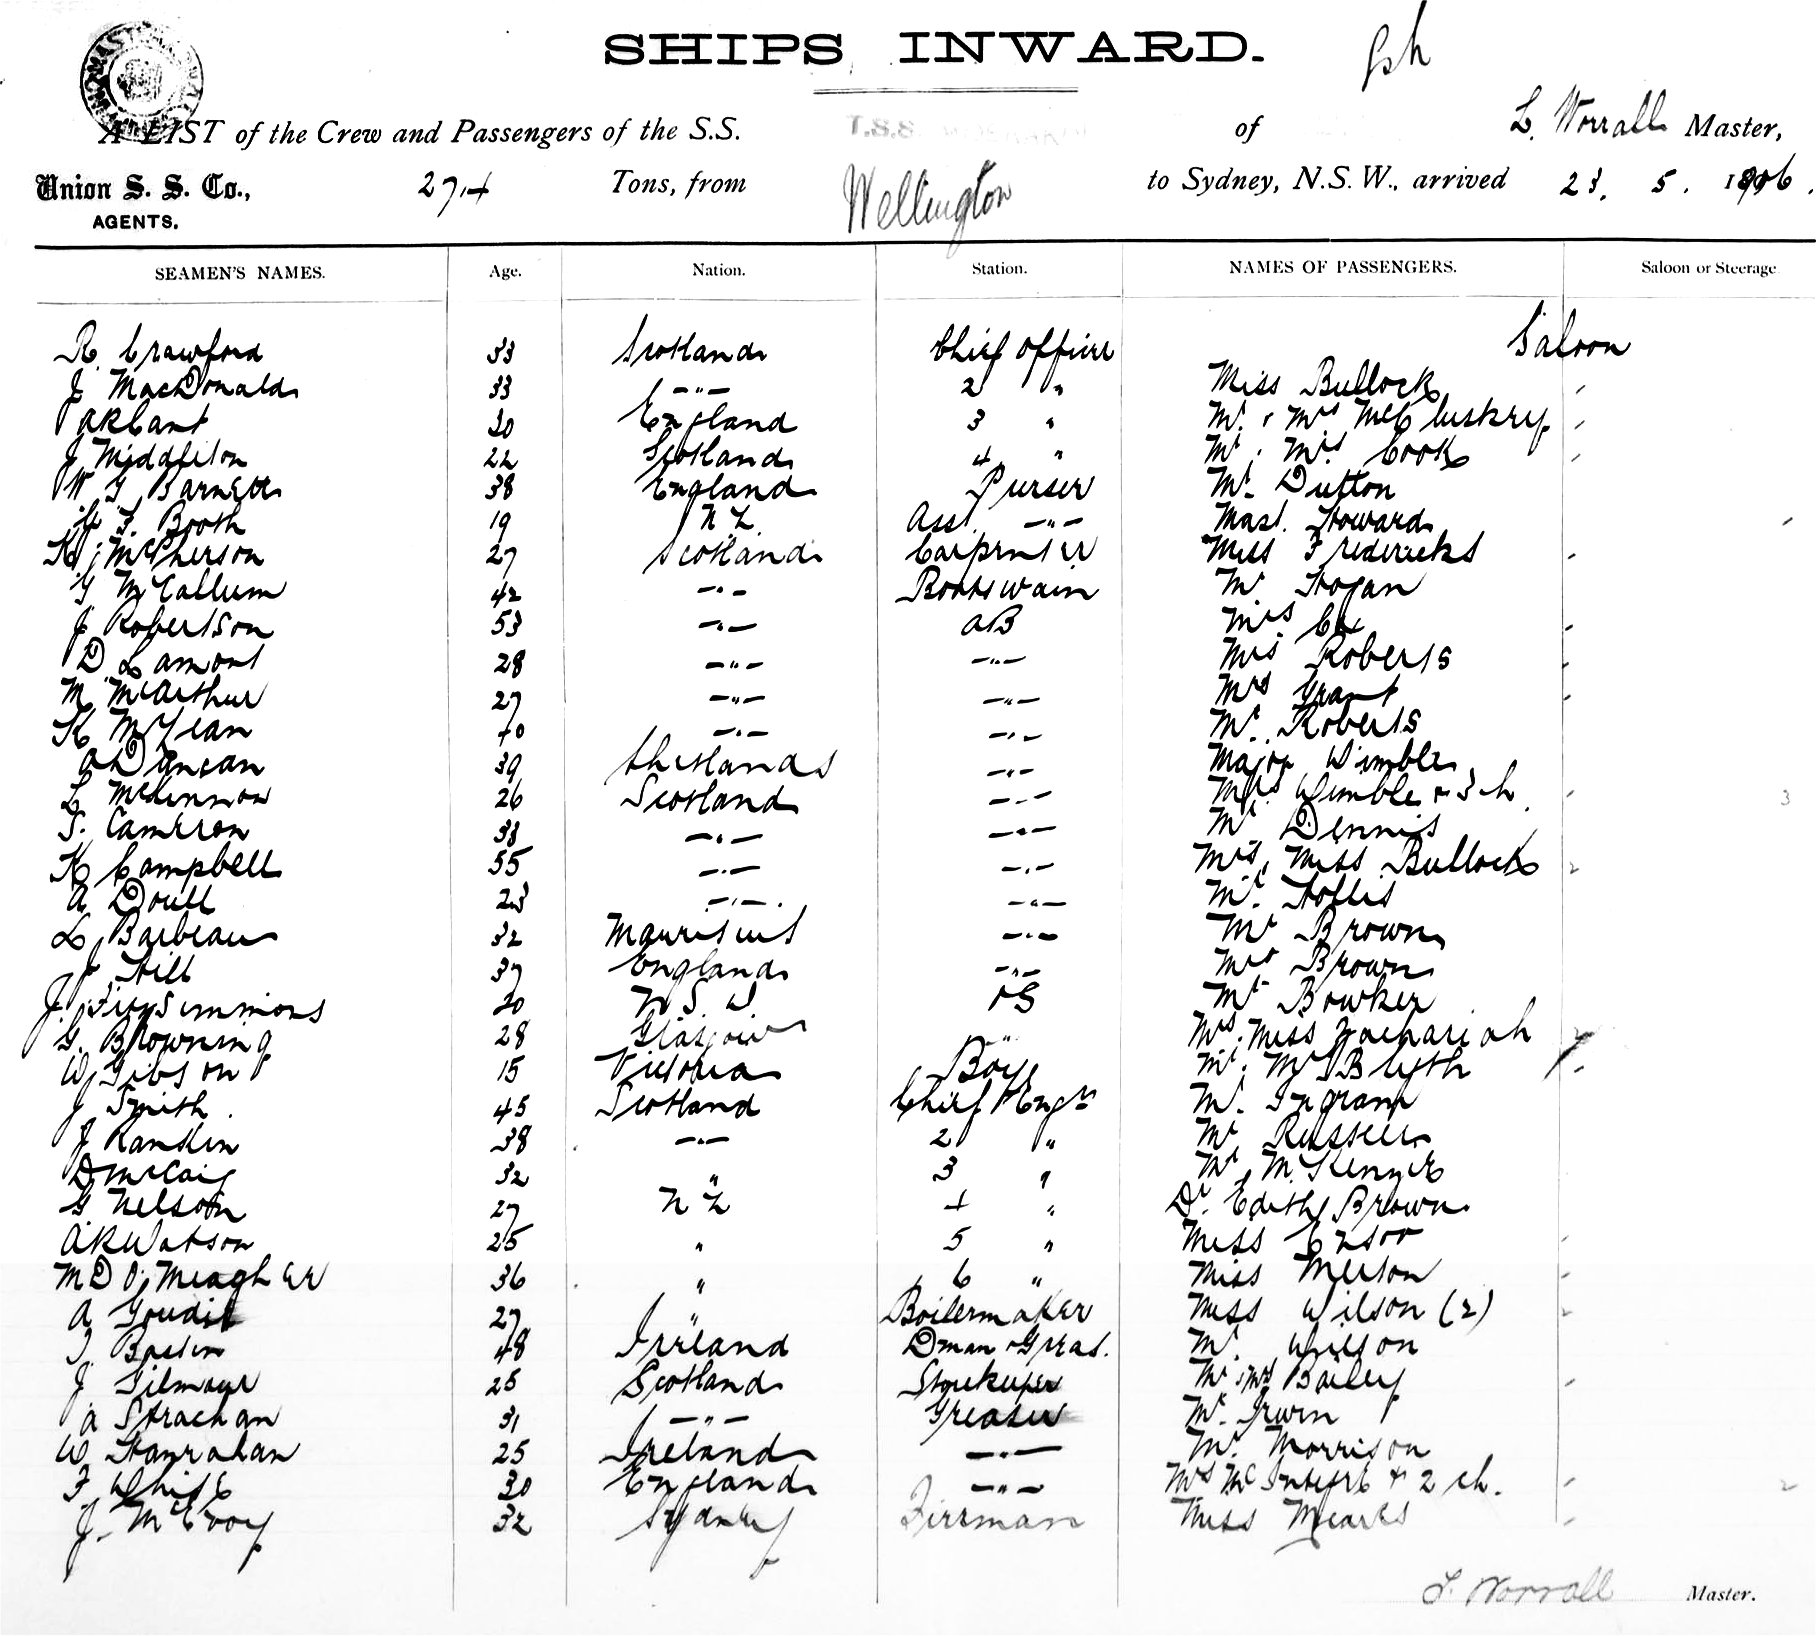 SHIPS INWARD.
A LIST of the Crew and Passengers of the S.S. T.S.S. of L. Worrall Master,
Union S. S. Co., AGENTS. 274 Tons, from Wellington to Sydney, N.S.W., arrived 23. 5. 1906.
SEAMEN'S NAMES. Age. Nation. Station. NAMES OF PASSENGERS. Saloon or Steerage
R. Crawford 33 Scotland Chief Officer Saloon
J MacDonald 33 —"— 2 " Miss Bullock
A R Cant 30 England 3 " Mr. & Mrs McCluskey
J Middleton 22 Scotland 4 " Mr. Mrs Cook
W G Barnett 38 England Purser Mr. Dutton
Booth 19 N Z Asst. —"— Mast. Howard
K McPherson 27 Scotland Carpenter Miss Fredericks
G McCallum 42 —"— Boatswain Mr Hogan
J Robertson 53 —"— AB Mrs Cox
D Lamont 28 —"— —"— Mrs Roberts
M McArthur 27 —"— —"— Mrs Grant
K McLean 40 —"— —"— Mr. Roberts
A Duncan 39 Shetlands —"— Major Wimble
L McKinnon 26 Scotland —"— Mrs Wimble & 3 ch 3
Cameron 33 —"— —"— Mr Dennis
K Campbell 55 —"— —"— Mrs, Miss Bullock 2
A Doull 23 —"— —"— Mr. Hollis
L Barbeau 32 Mauritius —"— Mr Brown
J Hill 37 England —"— Mrs Brown
J. Fitzsimmons 20 N S W OS Mr Bowker
G. Browning 28 Glasgow " Mrs. Miss Zachariah
W Gibson 15 Victoria Boy Mr. Mrs Blyth
J Smith. 45 Scotland Chief Engr Mr. Ingram
J Rankin 38 —"— 2 " Mr Russell
D McCaig 32 " 3 " Mr McKenzie
G Nelson 27 N Z 4 " Dr. Edith Brown
A R Watson 25 " 5 " Miss Ensor
M D O'Meagher 36 " 6 " Miss Merton
A Goudie 27 " Boilermaker Miss Wilson (2)
Bastin 48 Ireland Dman & Greas. Mr. Wilson
J Gilmour 25 Scotland Storekeeper Mr. Mrs Bailey
A Strachan 31 —"— Greaser Mr. Irwin
W Hanrahan 25 Ireland —"— Mr. Morrison
F White 30 England —"— Mrs McIntyre & 2 ch. 2
J. McEvoy 32 Sydney Fireman Miss Mearks
L. Worrall Master.